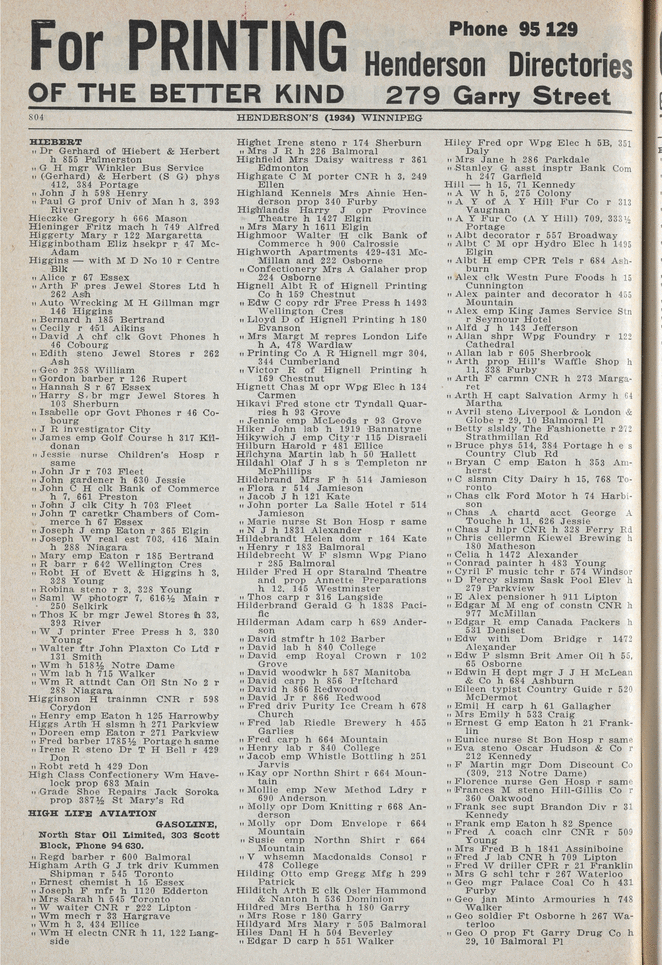 For PRINTING
OF THE BETTER KIND
Phone 95 129
Henderson Directories
279 Garry Street
804
HENDERSON'S (1934) WINNIPEG
HIEBERT
" Dr Gerhard of Hiebert & Herbert
h 855 Palmerston
" G H mgr Winkler Bus Service
" (Gerhard) & Herbert (S G) phys
412, 384 Portage
" John J h 598 Henry
" Paul G prof Univ of Man h 3, 393
River
Hieczke Gregory h 666 Mason
Hieninger Fritz mach h 749 Alfred
Higgerty Mary r 122 Margaretta
Higginbotham Eliz hsekpr r 47 Mc-
Adam
Higgins — with M D No 10 r Centre
Blk
" Alice r 67 Essex
" Arth F pres Jewel Stores Ltd h
262 Ash
" Auto Wrecking M H Gillman mgr
146 Higgins
" Bernard h 185 Bertrand
" Cecily r 451 Aikins
" David A chf clk Govt Phones h
46 Cobourg
" Edith steno Jewel Stores r 262
Ash
" Geo r 358 William
" Gordon barber r 126 Rupert
" Hannah S r 67 Essex
" Harry S br mgr Jewel Stores h
103 Sherburn
" Isabelle opr Govt Phones r 46 Co-
bourg
" J R investigator City
" James emp Golf Course h 317 Kil-
donan
" Jessie nurse Children's Hosp r
same
" John Jr r 703 Fleet
" John gardener h 630 Jessie
" John C H clk Bank of Commerce
h 7, 661 Preston
" John J clk City h 703 Fleet
" John T caretkr Chambers of Com-
merce h 67 Essex
" Joseph J emp Eaton r 365 Elgin
" Joseph W real est 703, 416 Main
h 288 Niagara
" Mary emp Eaton r 185 Bertrand
" R barr r 642 Wellington Cres
" Robt H of Evett & Higgins h 3,
328 Young
" Robina steno r 3, 328 Young
" Saml W photogr 7, 616½ Main r
250 Selkirk
" Thos K br mgr Jewel Stores h 33,
393 River
" W J printer Free Press h 3, 330
Young
" Walter ftr John Plaxton Co Ltd r
131 Smith
" Wm h 518½ Notre Dame
" Wm lab h 715 Walker
" Wm R attndt Can Oil Stn No 2 r
288 Niagara
Higginson H trainmn CNR r 598
Corydon
" Henry emp Eaton h 125 Harrowby
Higgs Arth H slsmn h 271 Parkview
" Doreen emp Eaton r 271 Parkview
" Fred barber 1785½ Portage h same
" Irene R steno Dr T H Bell r 429
Don
" Robt retd h 429 Don
High Class Confectionery Wm Have-
lock prop 683 Main
" Grade Shoe Repairs Jack Soroka
prop 387½ St Mary's Rd
HIGH LIFE AVIATION
GASOLINE,
North Star Oil Limited, 303 Scott
Block, Phone 94 630.
" Regd barber r 600 Balmoral
Higham Arth G J trk driv Kummen
Shipman r 545 Toronto
" Ernest chemist h 15 Essex
" Joseph F mfr h 1120 Edderton
" Mrs Sarah h 545 Toronto
" W waiter CNR r 222 Lipton
" Wm mech r 33 Hargrave
" Wm h 3, 434 Ellice
" Wm H electn CNR h 11, 122 Lang-
side
Highet Irene steno r 174 Sherburn
" Mrs J R h 226 Balmoral
Highfield Mrs Daisy waitress r 361
Edmonton
Highgate C M porter CNR h 3, 249
Ellen
Highland Kennels Mrs Annie Hen-
derson prop 340 Furby
Highlands Harry J opr Province
Theatre h 1427 Elgin
" Mrs Mary h 1611 Elgin
Highmoor Walter H clk Bank of
Commerce h 900 Calrossie
Highworth Apartments 429-431 Mc-
Millan and 222 Osborne
" Confectionery Mrs A Galaher prop
224 Osborne
Hignell Albt R of Hignell Printing
Co h 159 Chestnut
" Edw C copy rdr Free Press h 1493
Wellington Cres
" Lloyd D of Hignell Printing h 180
Evanson
" Mrs Margt M repres London Life
h A, 478 Wardlaw
" Printing Co A R Hignell mgr 304,
344 Cumberland
" Victor R of Hignell Printing h
169 Chestnut
Hignett Chas M opr Wpg Elec h 134
Carmen
Hikavi Fred stone ctr Tyndall Quar-
ries h 93 Grove
" Jennie emp McLeods r 93 Grove
Hiker John lab h 1919 Bannatyne
Hikywich J emp City r 115 Disraeli
Hilburn Harold r 481 Ellice
Hilchyna Martin lab h 50 Hallett
Hildahl Olaf J h s s Templeton nr
McPhillips
Hildebrand Mrs F h 514 Jamieson
" Flora r 514 Jamieson
" Jacob J h 121 Kate
" John porter La Salle Hotel r 514
Jamieson
" Marie nurse St Bon Hosp r same
" N J h 1831 Alexander
Hildebrandt Helen dom r 164 Kate
" Henry r 183 Balmoral
Hildebrecht W F slsmn Wpg Piano
r 285 Balmoral
Hilder Fred H opr Staralnd Theatre
and prop Annette Preparations
h 12, 145 Westminster
" Thos carp r 316 Langside
Hilderbrand Gerald G h 1838 Paci-
fic
Hilderman Adam carp h 689 Ander-
son
" David stmftr h 102 Barber
" David lab h 840 College
" David emp Royal Crown r 102
Grove
" David woodwkr h 587 Manitoba
" David carp h 856 Pritchard
" David h 866 Redwood
" David Jr r 866 Redwood
" Fred driv Purity Ice Cream h 678
Church
" Fred lab Riedle Brewery h 455
Garlies
" Fred carp h 664 Mountain
" Henry lab r 840 College
" Jacob emp Whistle Bottling h 251
Jarvis
" Kay opr Northn Shirt r 664 Moun-
tain
" Mollie emp New Method Ldry r
690 Anderson
" Molly opr Dom Knitting r 668 An-
derson
" Molly opr Dom Envelope r 664
Mountain
" Susie emp Northn Shirt r 664
Mountain
" V whsemn Macdonalds Consol r
478 College
Hilding Otto emp Gregg Mfg h 299
Patrick
Hilditch Arth E clk Osler Hammond
& Nanton h 536 Dominion
Hildred Mrs Bertha h 180 Garry
" Mrs Rose r 180 Garry
Hildyard Mrs Mary r 505 Balmoral
Hiles Danl H h 504 Beverley
" Edgar D carp h 551 Walker
Hiley Fred opr Wpg Elec h 5B, 351
Daly
" Mrs Jane h 286 Parkdale
" Stanley G asst insptr Bank Com
h 247 Garfield
Hill — h 15, 71 Kennedy
" A W h 5, 275 Colony
" A Y of A Y Hill Fur Co r 313
Vaughan
" A Y Fur Co (A Y Hill) 709, 333½
Portage
" Albt decorator r 557 Broadway
" Albt C M opr Hydro Elec h 1495
Elgin
" Albt H emp CPR Tels r 684 Ash-
burn
" Alex clk Westn Pure Foods h 15
Cunnington
" Alex painter and decorator h 455
Mountain
" Alex emp King James Service Stn
r Seymour Hotel
" Alfd J h 143 Jefferson
" Allan shpr Wpg Foundry r 122
Cathedral
" Allan lab r 605 Sherbrook
" Arth prop Hill's Waffle Shop h
11, 338 Furby
" Arth F carmn CNR h 273 Marga-
ret
" Arth H capt Salvation Army h 64
Martha
" Avril steno Liverpool & London &
Globe r 29, 10 Balmoral Pl
" Betty sldy The Fashionette r 272
Strathmillan Rd
" Bruce phys 514, 384 Portage h e s
Country Club Rd
" Bryan C emp Eaton h 353 Am-
herst
" C slsmn City Dairy h 15, 768 To-
ronto
" Chas clk Ford Motor h 74 Harbi-
son
" Chas A chartd acct George A
Touche h 11, 626 Jessie
" Chas J hlpr CNR h 328 Ferry Rd
" Chris cellermn Kiewel Brewing h
180 Matheson
" Celia h 1472 Alexander
" Conrad painter h 483 Young
" Cyril F music tchr r 574 Windsor
" D Percy slsmn Sask Pool Elev h
279 Parkview
" E Alex pensioner h 911 Lipton
" Edgar M M eng of constn CNR h
977 McMillan
" Edgar R emp Canada Packers h
531 Deniset
" Edw with Dom Bridge r 1472
Alexander
" Edw P slsmn Brit Amer Oil h 55,
65 Osborne
" Edwin H dept mgr J J H McLean
& Co h 684 Ashburn
" Eileen typist Country Guide r 520
McDermot
" Emil H carp h 61 Gallagher
" Mrs Emily h 533 Craig
" Ernest G emp Eaton h 21 Frank-
lin
" Eunice nurse St Bon Hosp r same
" Eva steno Oscar Hudson & Co r
212 Kennedy
" F Martin mgr Dom Discount Co
(309, 213 Notre Dame)
" Florence nurse Gen Hosp r same
" Frances M steno Hill-Gillis Co r
360 Oakwood
" Frank sec supt Brandon Div r 31
Kennedy
" Frank emp Eaton h 82 Spence
" Fred A coach clnr CNR r 509
Young
" Mrs Fred B h 1841 Assiniboine
" Fred J lab CNR h 709 Lipton
" Fred W driller CPR r 21 Franklin
" Mrs G schl tchr r 267 Waterloo
" Geo mgr Palace Coal Co h 431
Furby
" Geo jan Minto Armouries h 748
Walker
" Geo soldier Ft Osborne h 267 Wa-
terloo
" Geo O prop Ft Garry Drug Co h
29, 10 Balmoral Pl